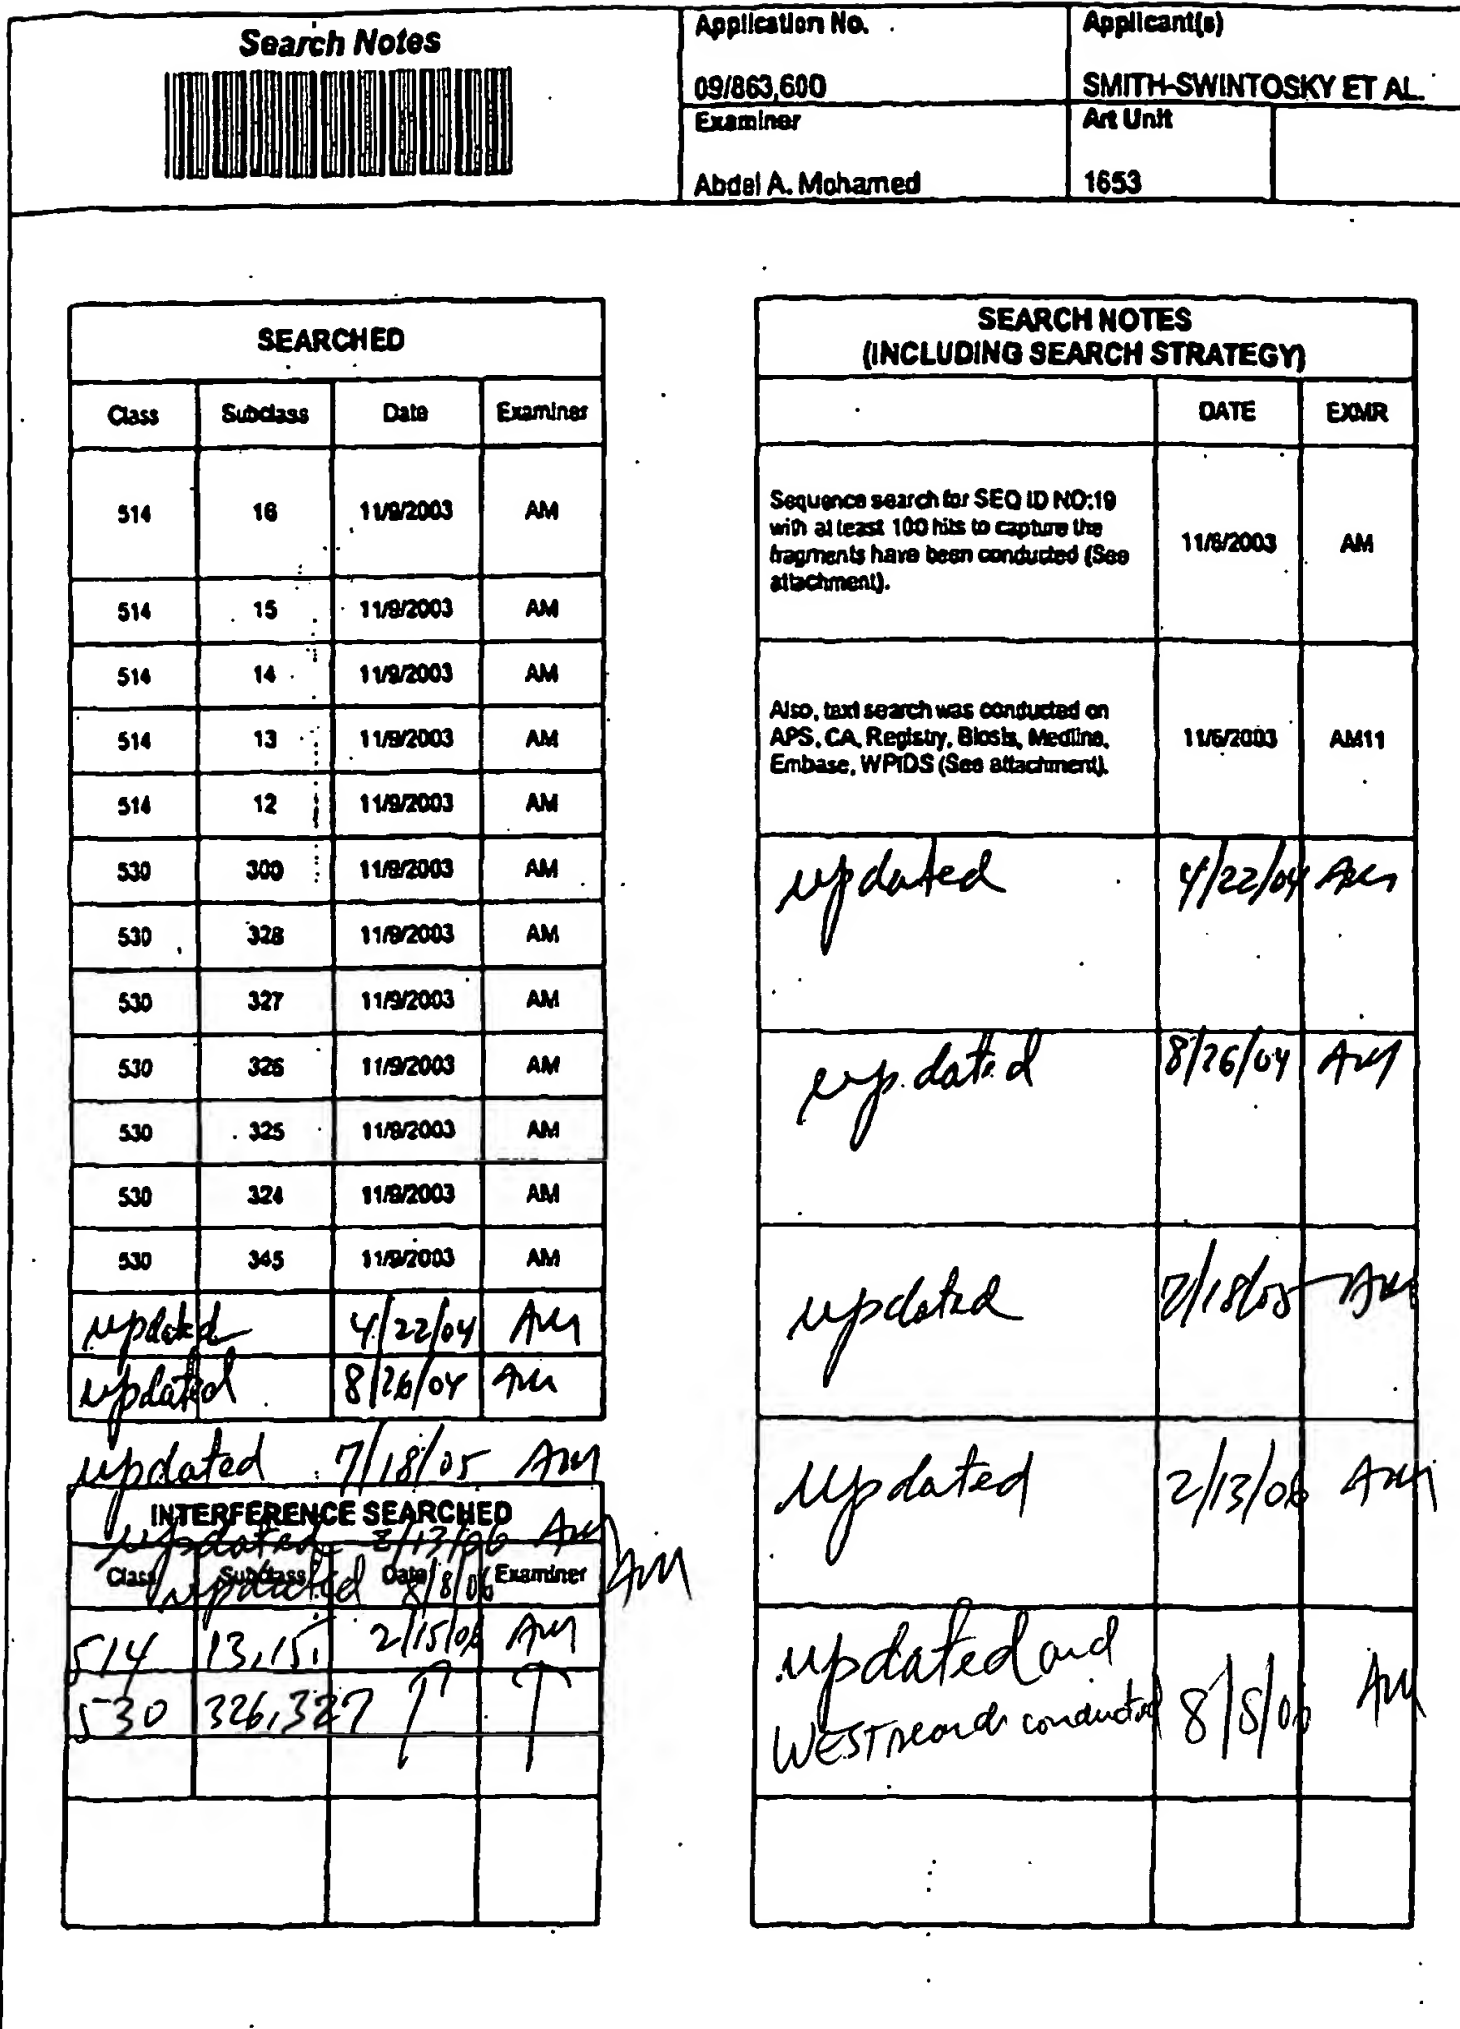 Search Notes
Application No.
Applicant(s)
09/863,600
SMITH-SWINTOSKY ET AL.
Examiner
Art Unit
Abdel A. Mohamed
1653
SEARCHED
Class Subclass Date Examiner
514 16 11/9/2003 AM
514 15 11/9/2003 AM
514 14 11/9/2003 AM
514 13 11/9/2003 AM
514 12 11/9/2003 AM
530 300 11/9/2003 AM
530 328 11/9/2003 AM
530 327 11/9/2003 AM
530 326 11/9/2003 AM
530 325 11/9/2003 AM
530 324 11/9/2003 AM
530 345 11/9/2003 AM
updated 4/22/04 AM
updated 8/26/04 AM
updated 7/18/05 AM
INTERFERENCE SEARCHED
updated 2/13/06 AM
Class Subclass Date Examiner
updated 8/8/06 AM
514 13,15, 2/15/06 AM
530 326,327
SEARCH NOTES
(INCLUDING SEARCH STRATEGY)
DATE EXMR
Sequence search for SEQ ID NO:19
with at least 100 hits to capture the
fragments have been conducted (See
attachment).
11/6/2003 AM
Also, text search was conducted on
APS, CA, Registry, Biosis, Medline,
Embase, WPIDS (See attachment).
11/6/2003 AM11
updated 4/22/04 AM
updated 8/26/04 AM
updated 7/18/05 AM
updated 2/13/06 AM
updated and
WEST search conducted 8/8/06 AM